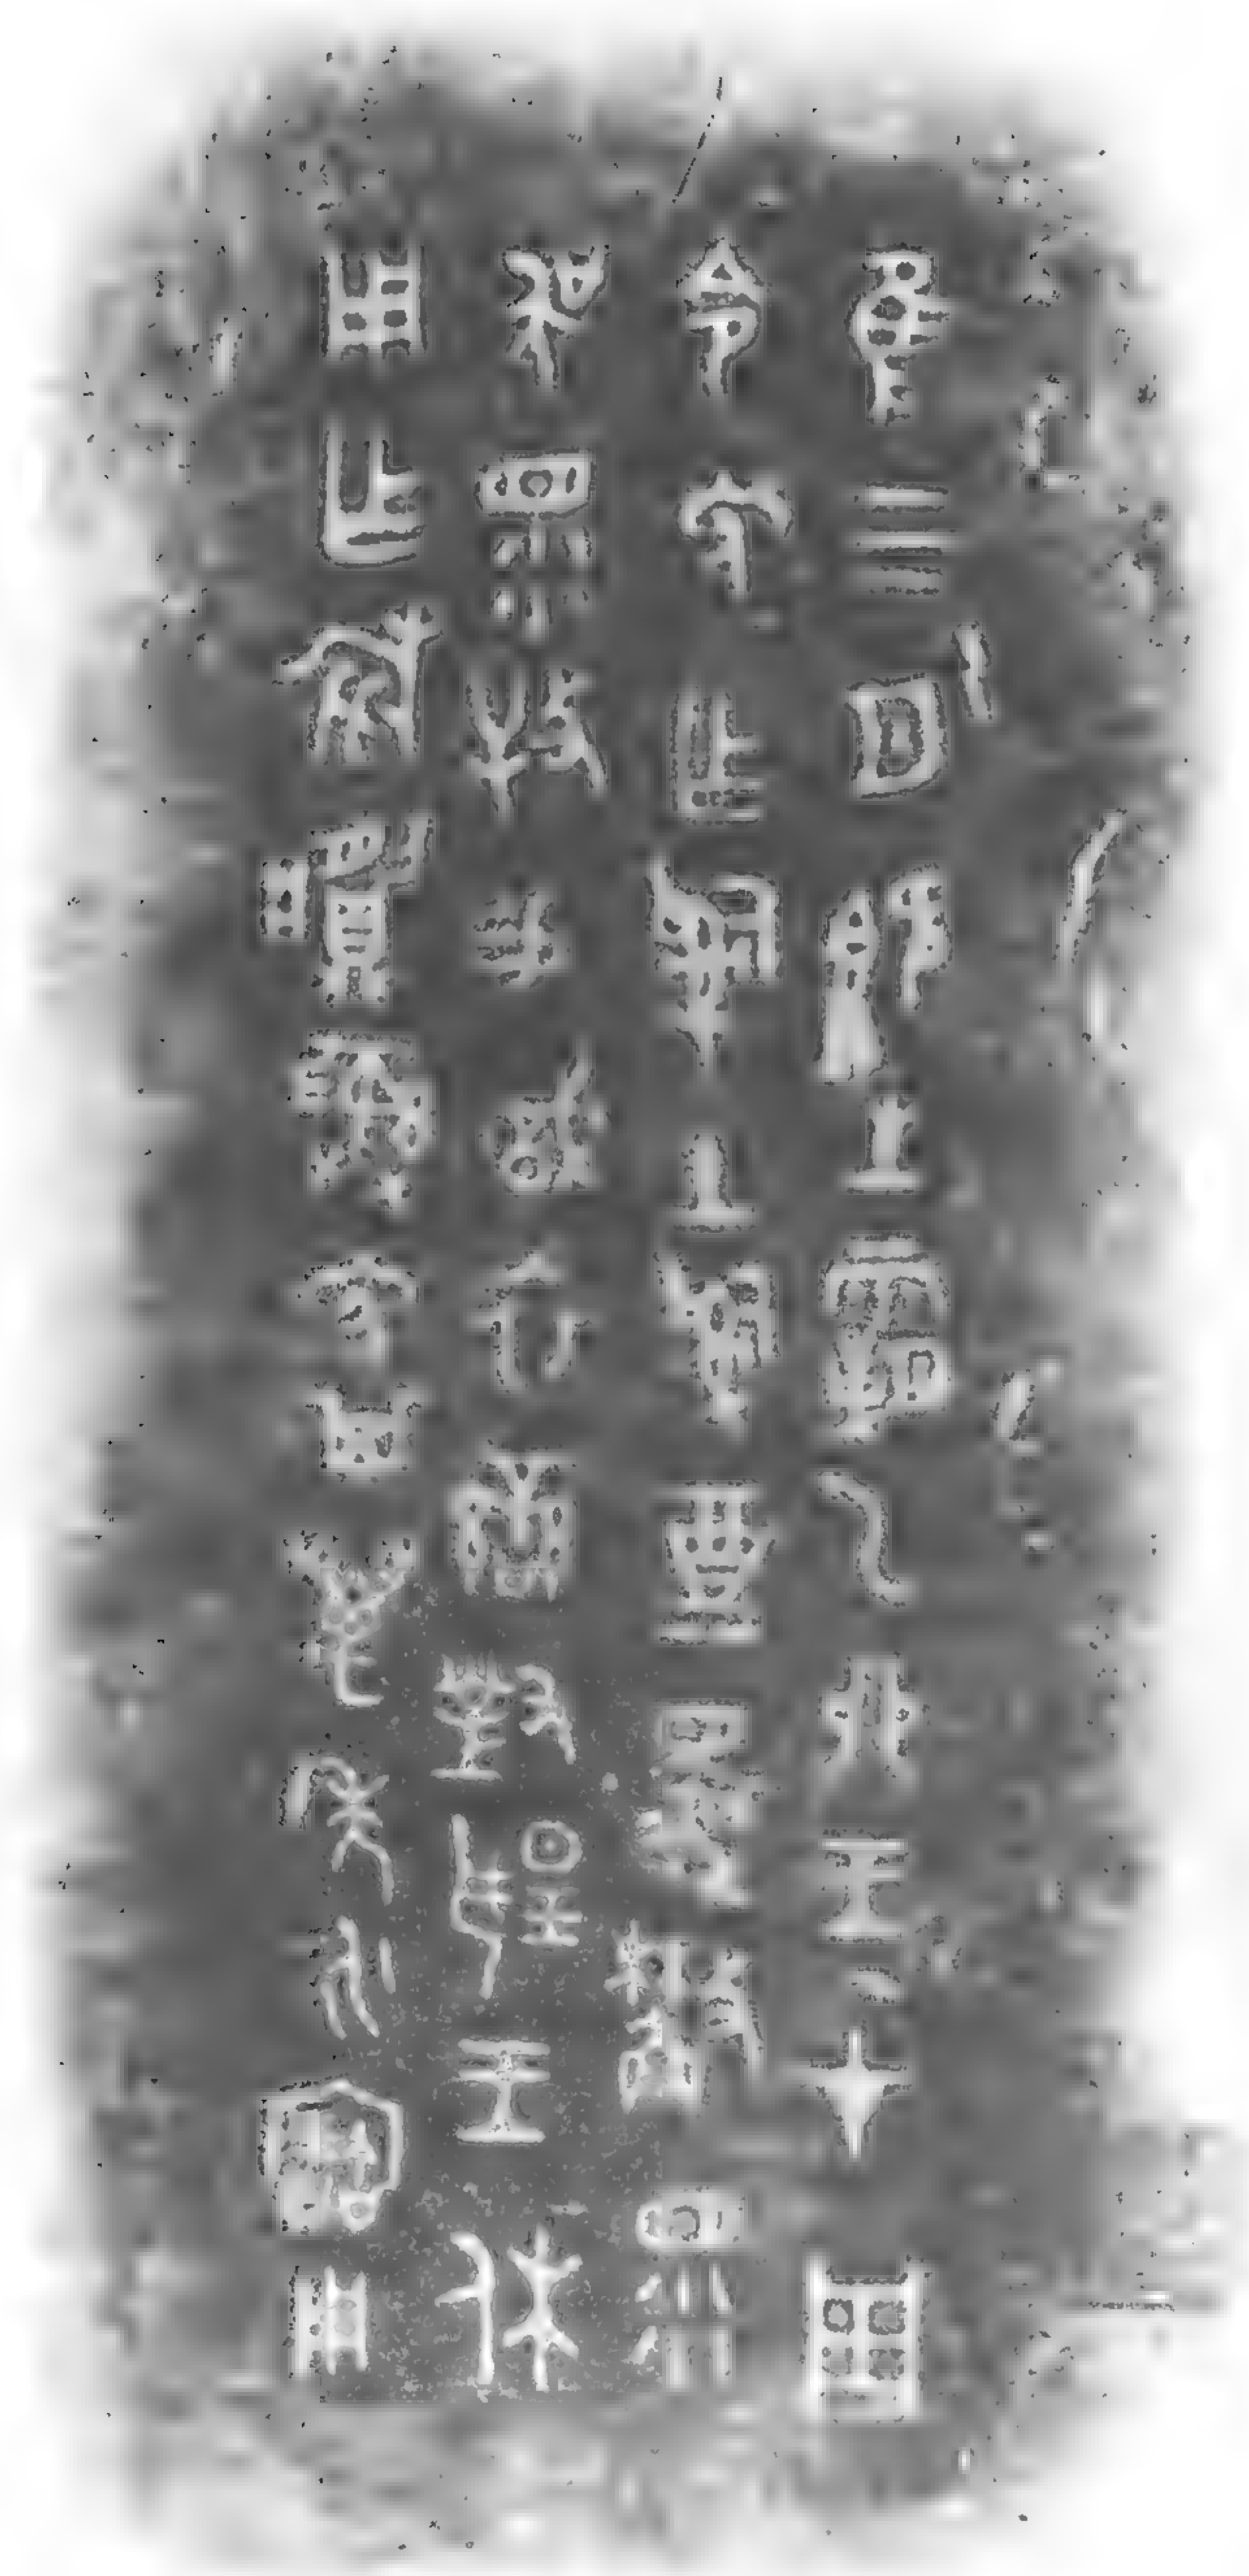 隹三月既生霸乙卯王才周
令免乍𤔲土𤔲奠還𣞤眔
吳眔牧易戠衣䜌對揚王休
用乍旅𩱧彝免其萬年永寶用